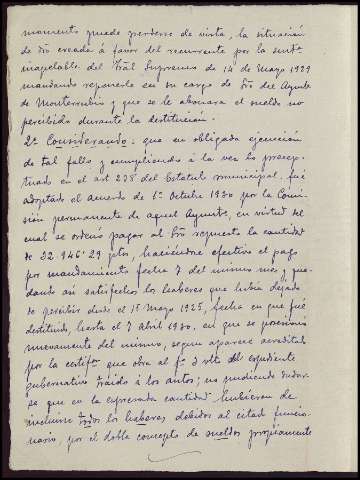 momento puede perderse de vista, la situación
de dro creada á favor del recurrente por la sentª
inapelable del Tral Supremo de 14 de Mayo 1929
mandando reponerle en su cargo de Srio del Aymto
de Monterrubio y que se le abonara el sueldo no
percibido durante la destitución.
2º Considerando: que en obligada ejecución
de tal fallo y cumpliendo á la vez lo precep-
tuado en el art 278 del Estatuto municipal, fué
adoptado el acuerdo de 1º Octubre 1930 por la Comi-
sión permanente de aquel Aymto, en virtud del
cual se ordenó pagar al Srio repuesto la cantidad
de 22.946'29 ptas, haciéndose efectivo el pago
por mandamiento fecha 7 del mismo mes, que-
dando así satisfechos los haberes que había dejado
de percibir desde el 15 Mayo 1925, fecha en que fué
destituido, hasta el 7 abril 1930, en que se posesionó
nuevamente del mismo, según aparece acreditado
por la certifon que obra al fº 3 vtto del expediente
gubernativo traido á los autos; no pudiendo dudar-
se que en la expresada cantidad hubieron de
incluirse todos los haberes debidos al citado funcio-
nario, por el doble concepto de sueldos propiamente